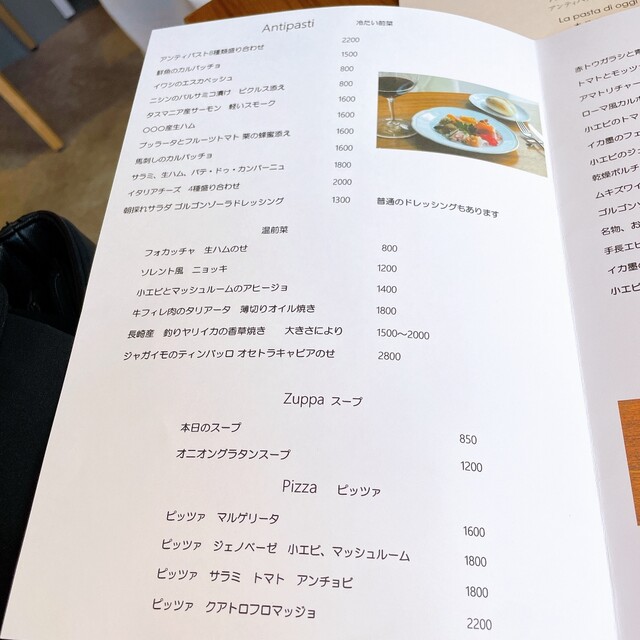 Antipasti 冷たい前菜
アンティパスト8種類盛り合わせ 2200
鮮魚のカルパッチョ 1500
イワシのエスカベッシュ 800
ニシンのバルサミコ漬け ピクルス添え 800
タスマニア産サーモン 軽いスモーク 1600
〇〇〇産生ハム 1600
ブッラータとフルーツトマト 栗の蜂蜜添え 1600
馬刺しのカルパッチョ 1600
サラミ、生ハム、パテ・ドゥ・カンパーニュ 1800
イタリアチーズ 4種盛り合わせ 2000
朝採れサラダ ゴルゴンゾーラドレッシング 1300 普通のドレッシングもあります
温前菜
フォカッチャ 生ハムのせ 800
ソレント風 ニョッキ 1200
小エビとマッシュルームのアヒージョ 1400
牛フィレ肉のタリアータ 薄切りオイル焼き 1800
長崎産 釣りヤリイカの香草焼き 大きさにより 1500～2000
ジャガイモのティンバッロ オセトラキャビアのせ 2800
Zuppa スープ
本日のスープ 850
オニオングラタンスープ 1200
Pizza ピッツァ
ピッツァ マルゲリータ 1600
ピッツァ ジェノベーゼ 小エビ、マッシュルーム 1800
ピッツァ サラミ トマト アンチョビ 1800
ピッツァ クアトロフロマッジョ 2200
La pasta di oggi
赤トウガラシと
トマトとモッツ
アマトリチャー
ローマ風カルボ
小エビのトマ
イカ墨のフ
小エビのジェ
乾燥ポルチ
ムキズワイ
ゴルゴン
名物、お
手長エビ
イカ墨の
小エビ